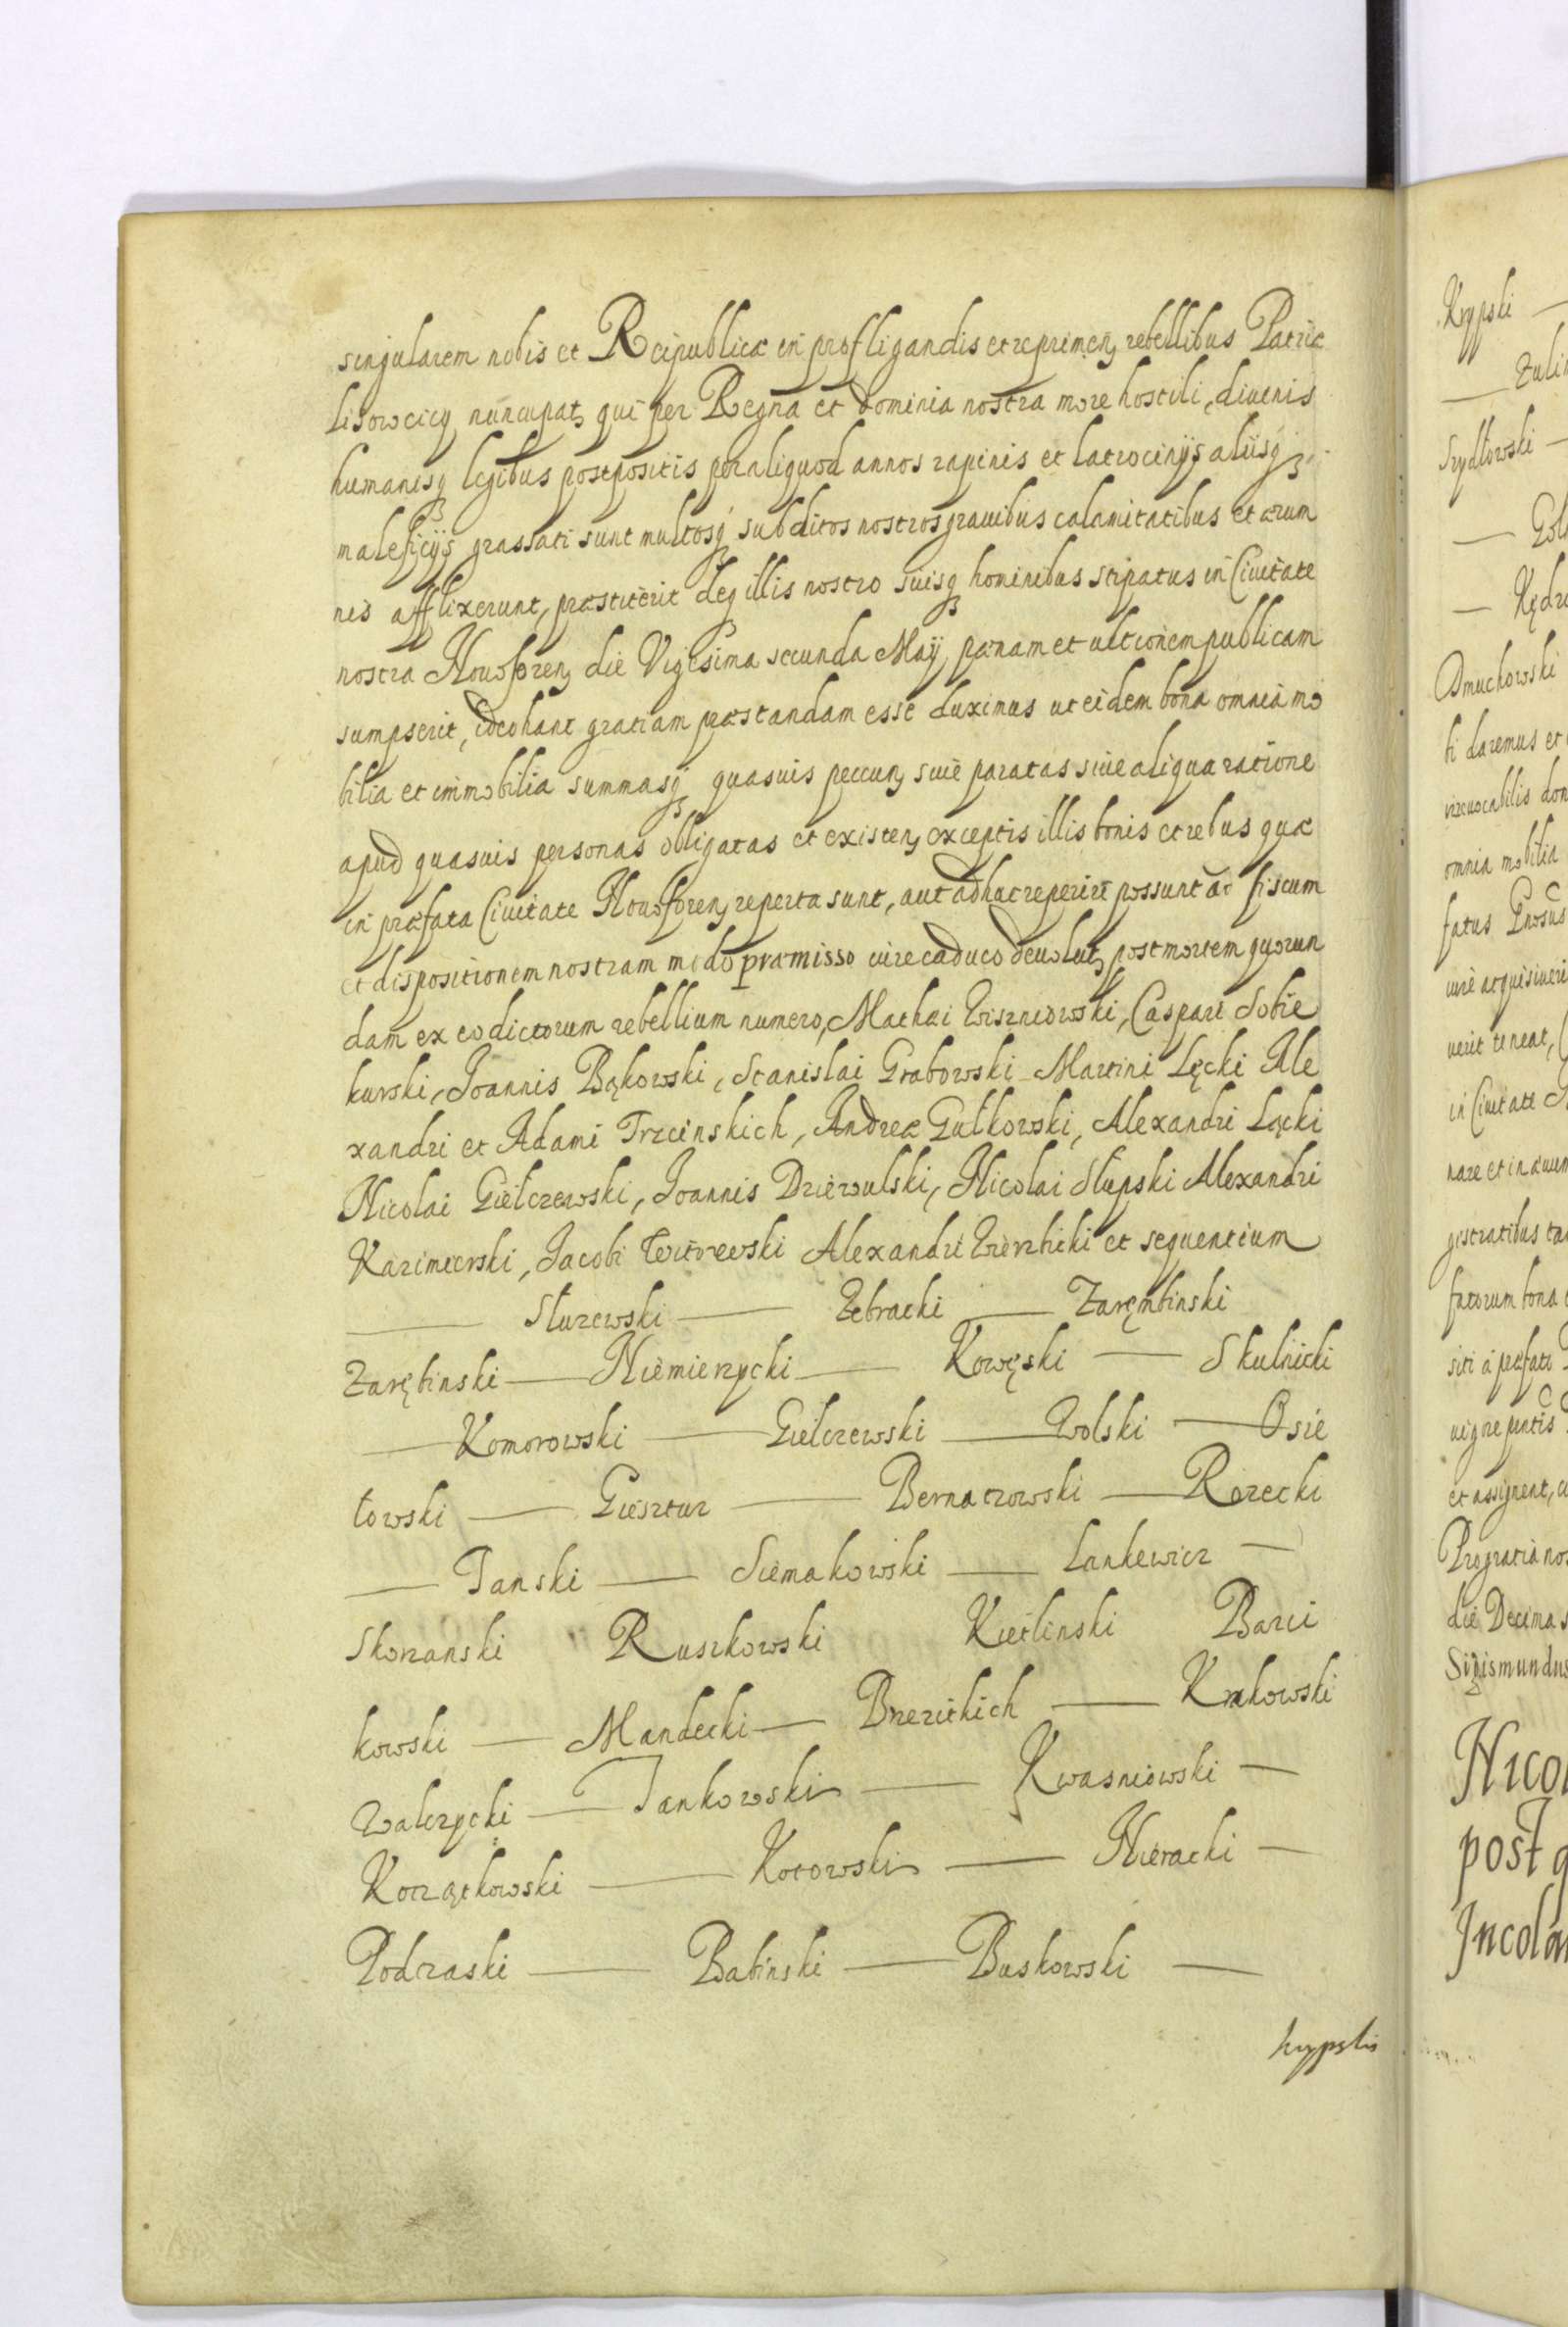 singularem nobis et Reipublicæ in profligandis et reprimen rebellibus Patriæ
lisowcicq nuncupat, qui per Regna et dominia nostra more hostili, diuinis
humanisq legibus postpositis per aliquod annos rapinis et latrocinijs alijsq
maleficijs grassati sunt multosq subditos nostros grauibus calamitatibus et ærum
nis afflixerunt, præstiterit deq illis nostro suisq hominibus stipatus in Ciuitate
nostra Nouoforen die Vigesima secunda Maij pœnam et ultionem publicam
sumpserit, ideo hanc gratiam præstandam esse duximus ut eidem bona omnia mo
bilia et immobilia summasq quasuis peccun siue paratas siue aliqua ratione
apud quasuis personas obligatas et existen exceptis illis bonis et rebus quæ
in præfata Ciuitate Nouoforen reperta sunt, aut adhuc reperiri possunt ad fiscum
et dispositionem nostram modo præmisso iure caduco deuolut, post mortem quorun
dam ex eo dictorum rebellium numero, Mathæi Wiszniowski, Caspari Sobie
kurski, Joannis Bąkowski, Stanislai Grabowski Martini Lęcki Ale
xandri et Adami Trzcinskich, Andreæ Gułkowski, Alexandri Łącki
Nicolai Giełczewski, Joannis Dziewulski, Nicolai Słupski Alexandri
Kazimierski, Jacobi Alexandri Wierzbicki et sequentium
— Słuzewski — Zebracki — Zaręmbinski
Zarębinski — Niemierzycki — Kowęski — Skulnicki
— Komorowski — Giełczewski — Wolski — Osie
łowski — Giesztur — Bernaczowski — Rozecki
— Janski — Siemakowski — Lankewicz —
Skorzanski Ruszkowski Kietlinski Barci
kowski — Mandecki — Brzezickich — Krakowski
Walczycki — Jankowski — Kwasniowski —
Korzątkowski — Kotowski — Nieracki —
Podzaski — Babinski — Baskowski —
krypski
Krypski —
Szydłowski —
— Kędz
Dmuchowski
ti daremus et
omnia mobilia
in Ciuitate
et assignent,
die Decima
Sigismundus
post
Incola